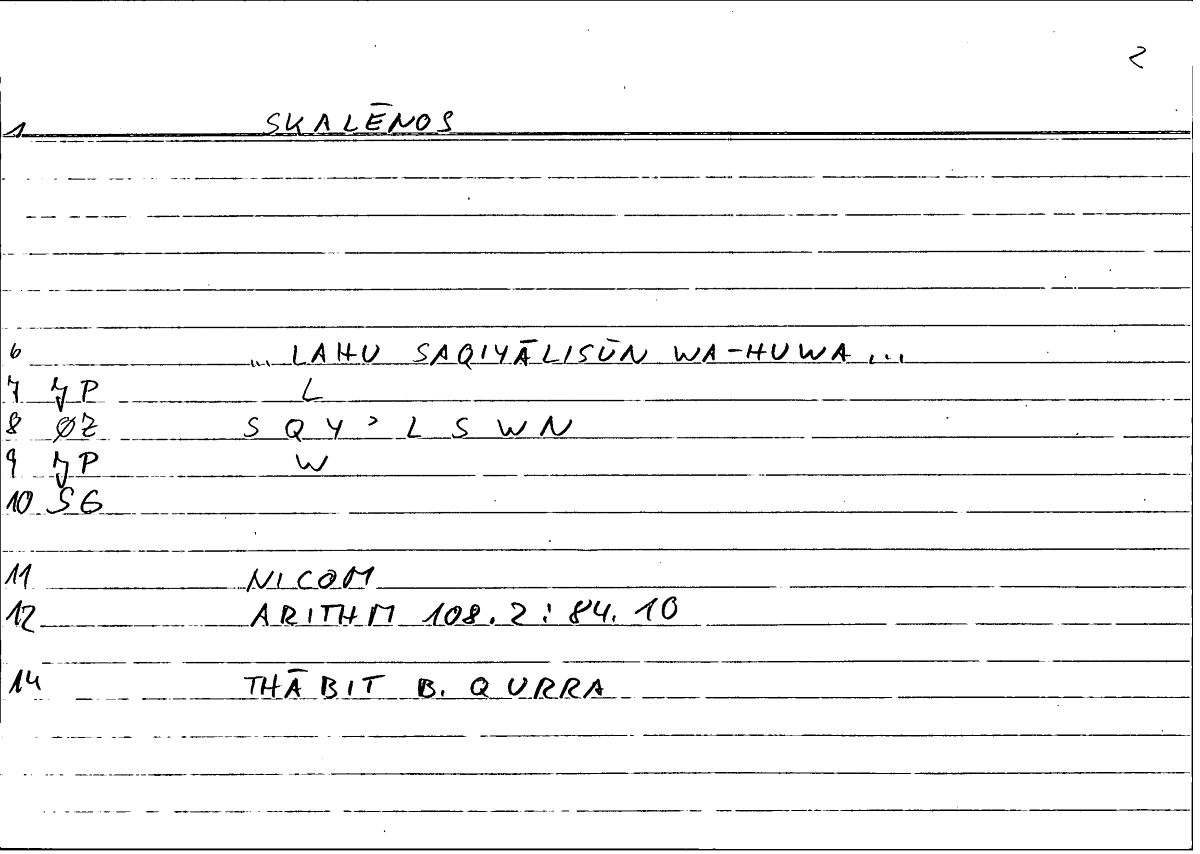 2
1 SKALĒNOS
6 ... LAHU SAQIYĀLISŪN WA-HUWA ...
7 YP L
8 ØZ S Q Y ʾ L S W N
9 YP W
10 SG
11 NICOM
12 ARITHM 108.2 : 84.10
14 THĀBIT B. QURRA